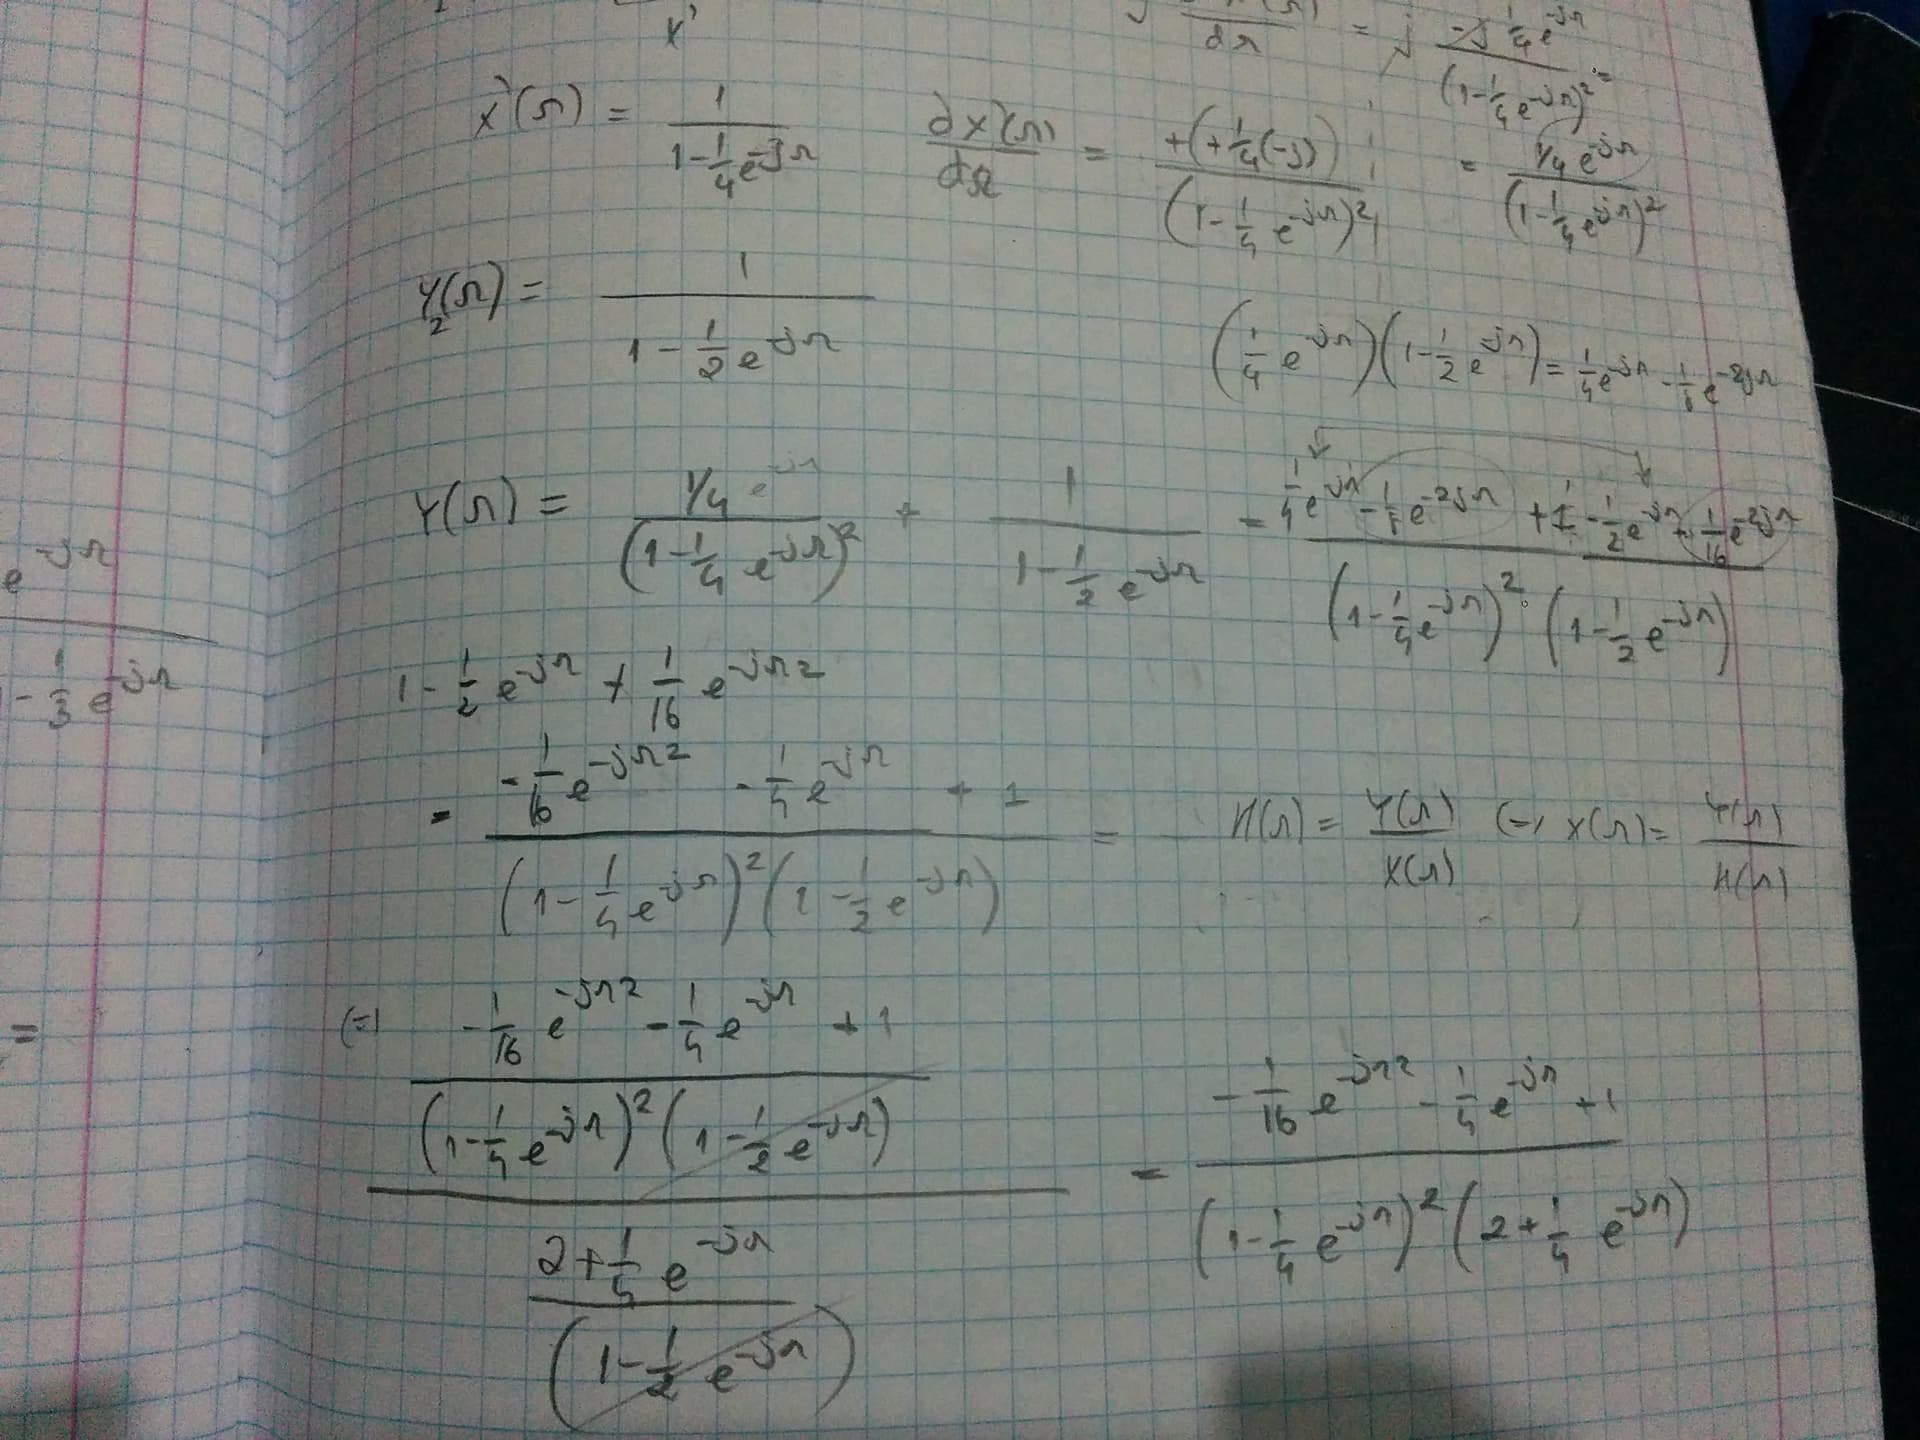 x'
dΩ = j -j 1/4 e^-jΩ / (1 - 1/4 e^-jΩ)^2 =
x'(Ω) = 1 / (1 - 1/4 e^-jΩ)
dx'(Ω) / dΩ = +(+1/4(-j)) / (1 - 1/4 e^-jΩ)^2
= 1/4 e^-jΩ / (1 - 1/4 e^-jΩ)^2
Y2(Ω) = 1 / (1 - 1/2 e^-jΩ)
(1/4 e^-jΩ)(1 - 1/2 e^-jΩ) = 1/4 e^-jΩ - 1/8 e^-2jΩ
Y(Ω) = 1/4 e^-jΩ / (1 - 1/4 e^-jΩ)^2 + 1 / (1 - 1/2 e^-jΩ) = (1/4 e^-jΩ - 1/8 e^-2jΩ + 1 - 1/2 e^-jΩ + 1/16 e^-2jΩ) / (1 - 1/4 e^-jΩ)^2 (1 - 1/2 e^-jΩ)
e^-jΩ
- 1/3 e^-jΩ
1 - 1/2 e^-jΩ + 1/16 e^-jΩ2
= (-1/16 e^-jΩ2 - 1/4 e^-jΩ + 1) / (1 - 1/4 e^-jΩ)^2 (1 - 1/2 e^-jΩ) =
H(Ω) = Y(Ω) / X(Ω) (=) X(Ω) = Y(Ω) / H(Ω)
=
(=) (-1/16 e^-jΩ2 - 1/4 e^-jΩ + 1) / (1 - 1/4 e^-jΩ)^2 (1 - 1/2 e^-jΩ)
2 + 1/4 e^-jΩ / (1 - 1/2 e^-jΩ)
= (-1/16 e^-jΩ2 - 1/4 e^-jΩ + 1) / (1 - 1/4 e^-jΩ)^2 (2 + 1/4 e^-jΩ)